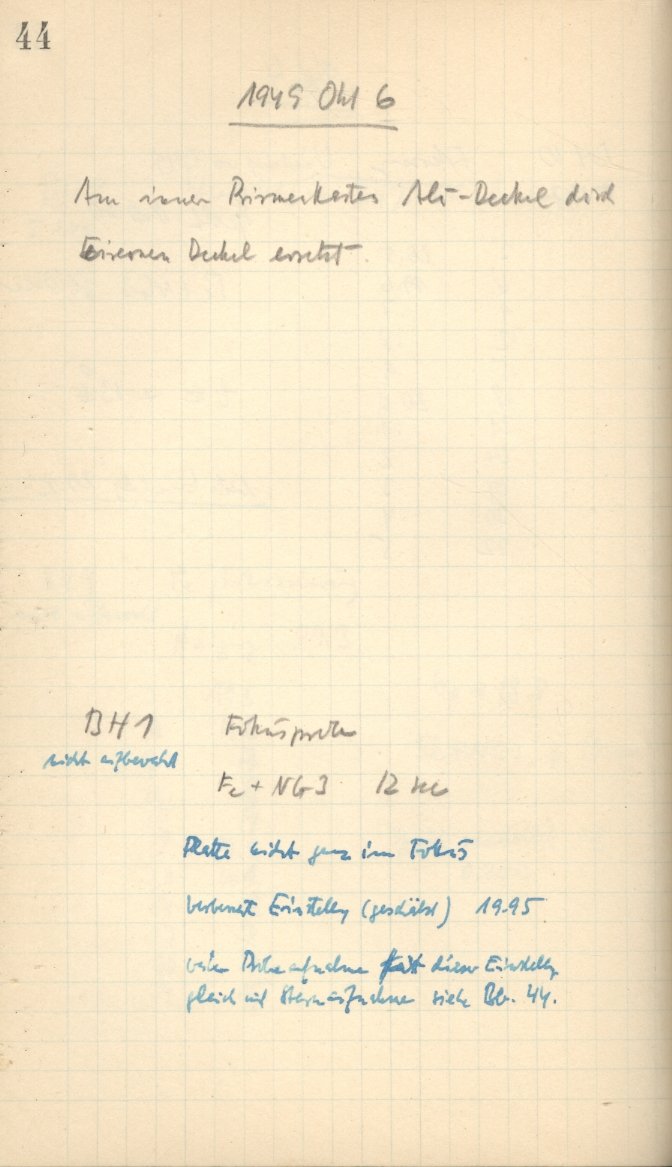 44
1949 Okt 6
Am inneren Prismenkasten Alu-Deckel durch
Eisernen Deckel ersetzt.
BH 1 Fokusprobe
nicht aufbewahrt
Fe + NG3 12 sec
Platte nicht ganz im Fokus
verbesserte Einstellg (geschätzt) 19.95
Probeaufnahme mit dieser Einstellg
gleich mit Sternaufnahme siehe Bb. 44.